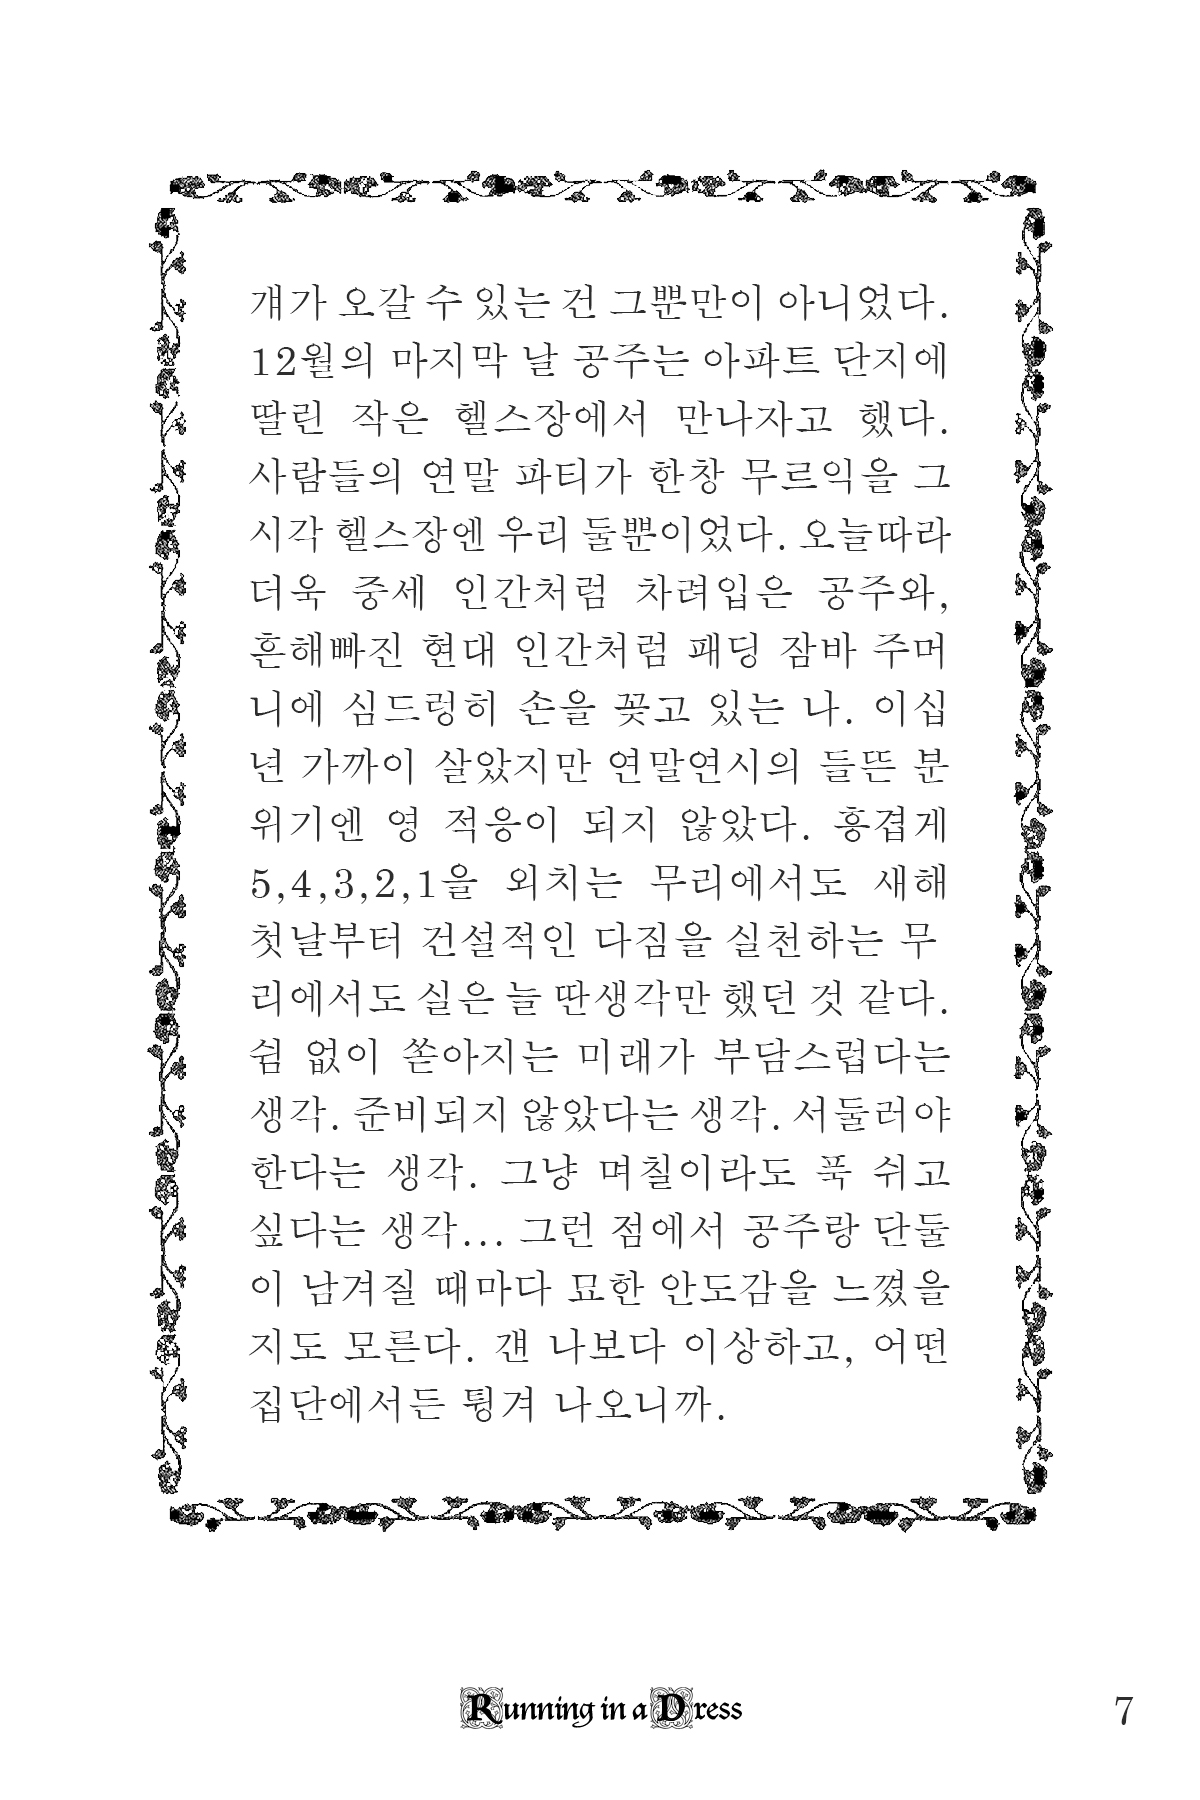 걔가 오갈 수 있는 건 그뿐만이 아니었다.
12월의 마지막 날 공주는 아파트 단지에
딸린 작은 헬스장에서 만나자고 했다.
사람들의 연말 파티가 한창 무르익을 그
시각 헬스장엔 우리 둘뿐이었다. 오늘따라
더욱 중세 인간처럼 차려입은 공주와,
흔해빠진 현대 인간처럼 패딩 잠바 주머
니에 심드렁히 손을 꽂고 있는 나. 이십
년 가까이 살았지만 연말연시의 들뜬 분
위기엔 영 적응이 되지 않았다. 흥겹게
5,4,3,2,1을 외치는 무리에서도 새해
첫날부터 건설적인 다짐을 실천하는 무
리에서도 실은 늘 딴생각만 했던 것 같다.
쉼 없이 쏟아지는 미래가 부담스럽다는
생각. 준비되지 않았다는 생각. 서둘러야
한다는 생각. 그냥 며칠이라도 푹 쉬고
싶다는 생각... 그런 점에서 공주랑 단둘
이 남겨질 때마다 묘한 안도감을 느꼈을
지도 모른다. 걘 나보다 이상하고, 어떤
집단에서든 튕겨 나오니까.
Running in a Dress
7